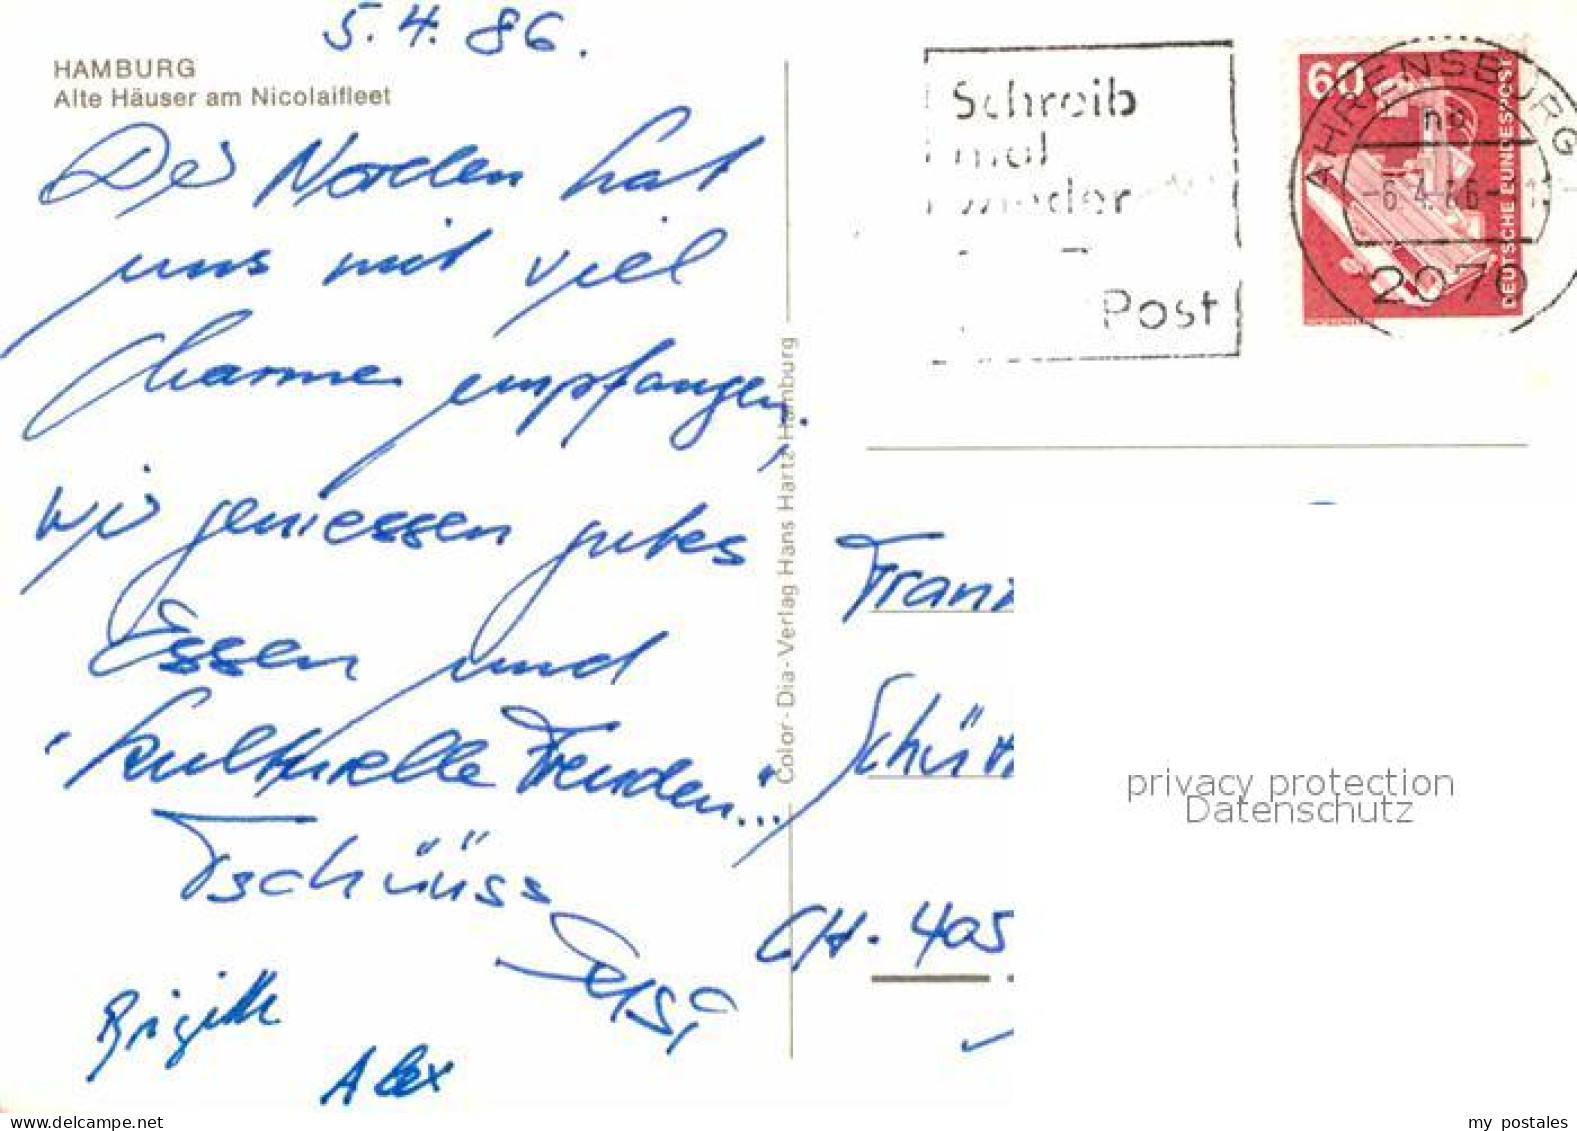 5.4.86.
HAMBURG
Alte Häuser am Nicolaifleet
Der Norden hat
uns mit viel
Charme empfangen,
wir geniessen gutes
Essen und
"kulturelle Freuden..."
Tschüüss
Brigitte
Alex
Color-Dia-Verlag Hans Hartz Hamburg
Schreib
mal
wieder
Post
60
DEUTSCHE BUNDESPOST
AHRENSBURG 1
2070
CH-405
privacy protection
Datenschutz
my postales